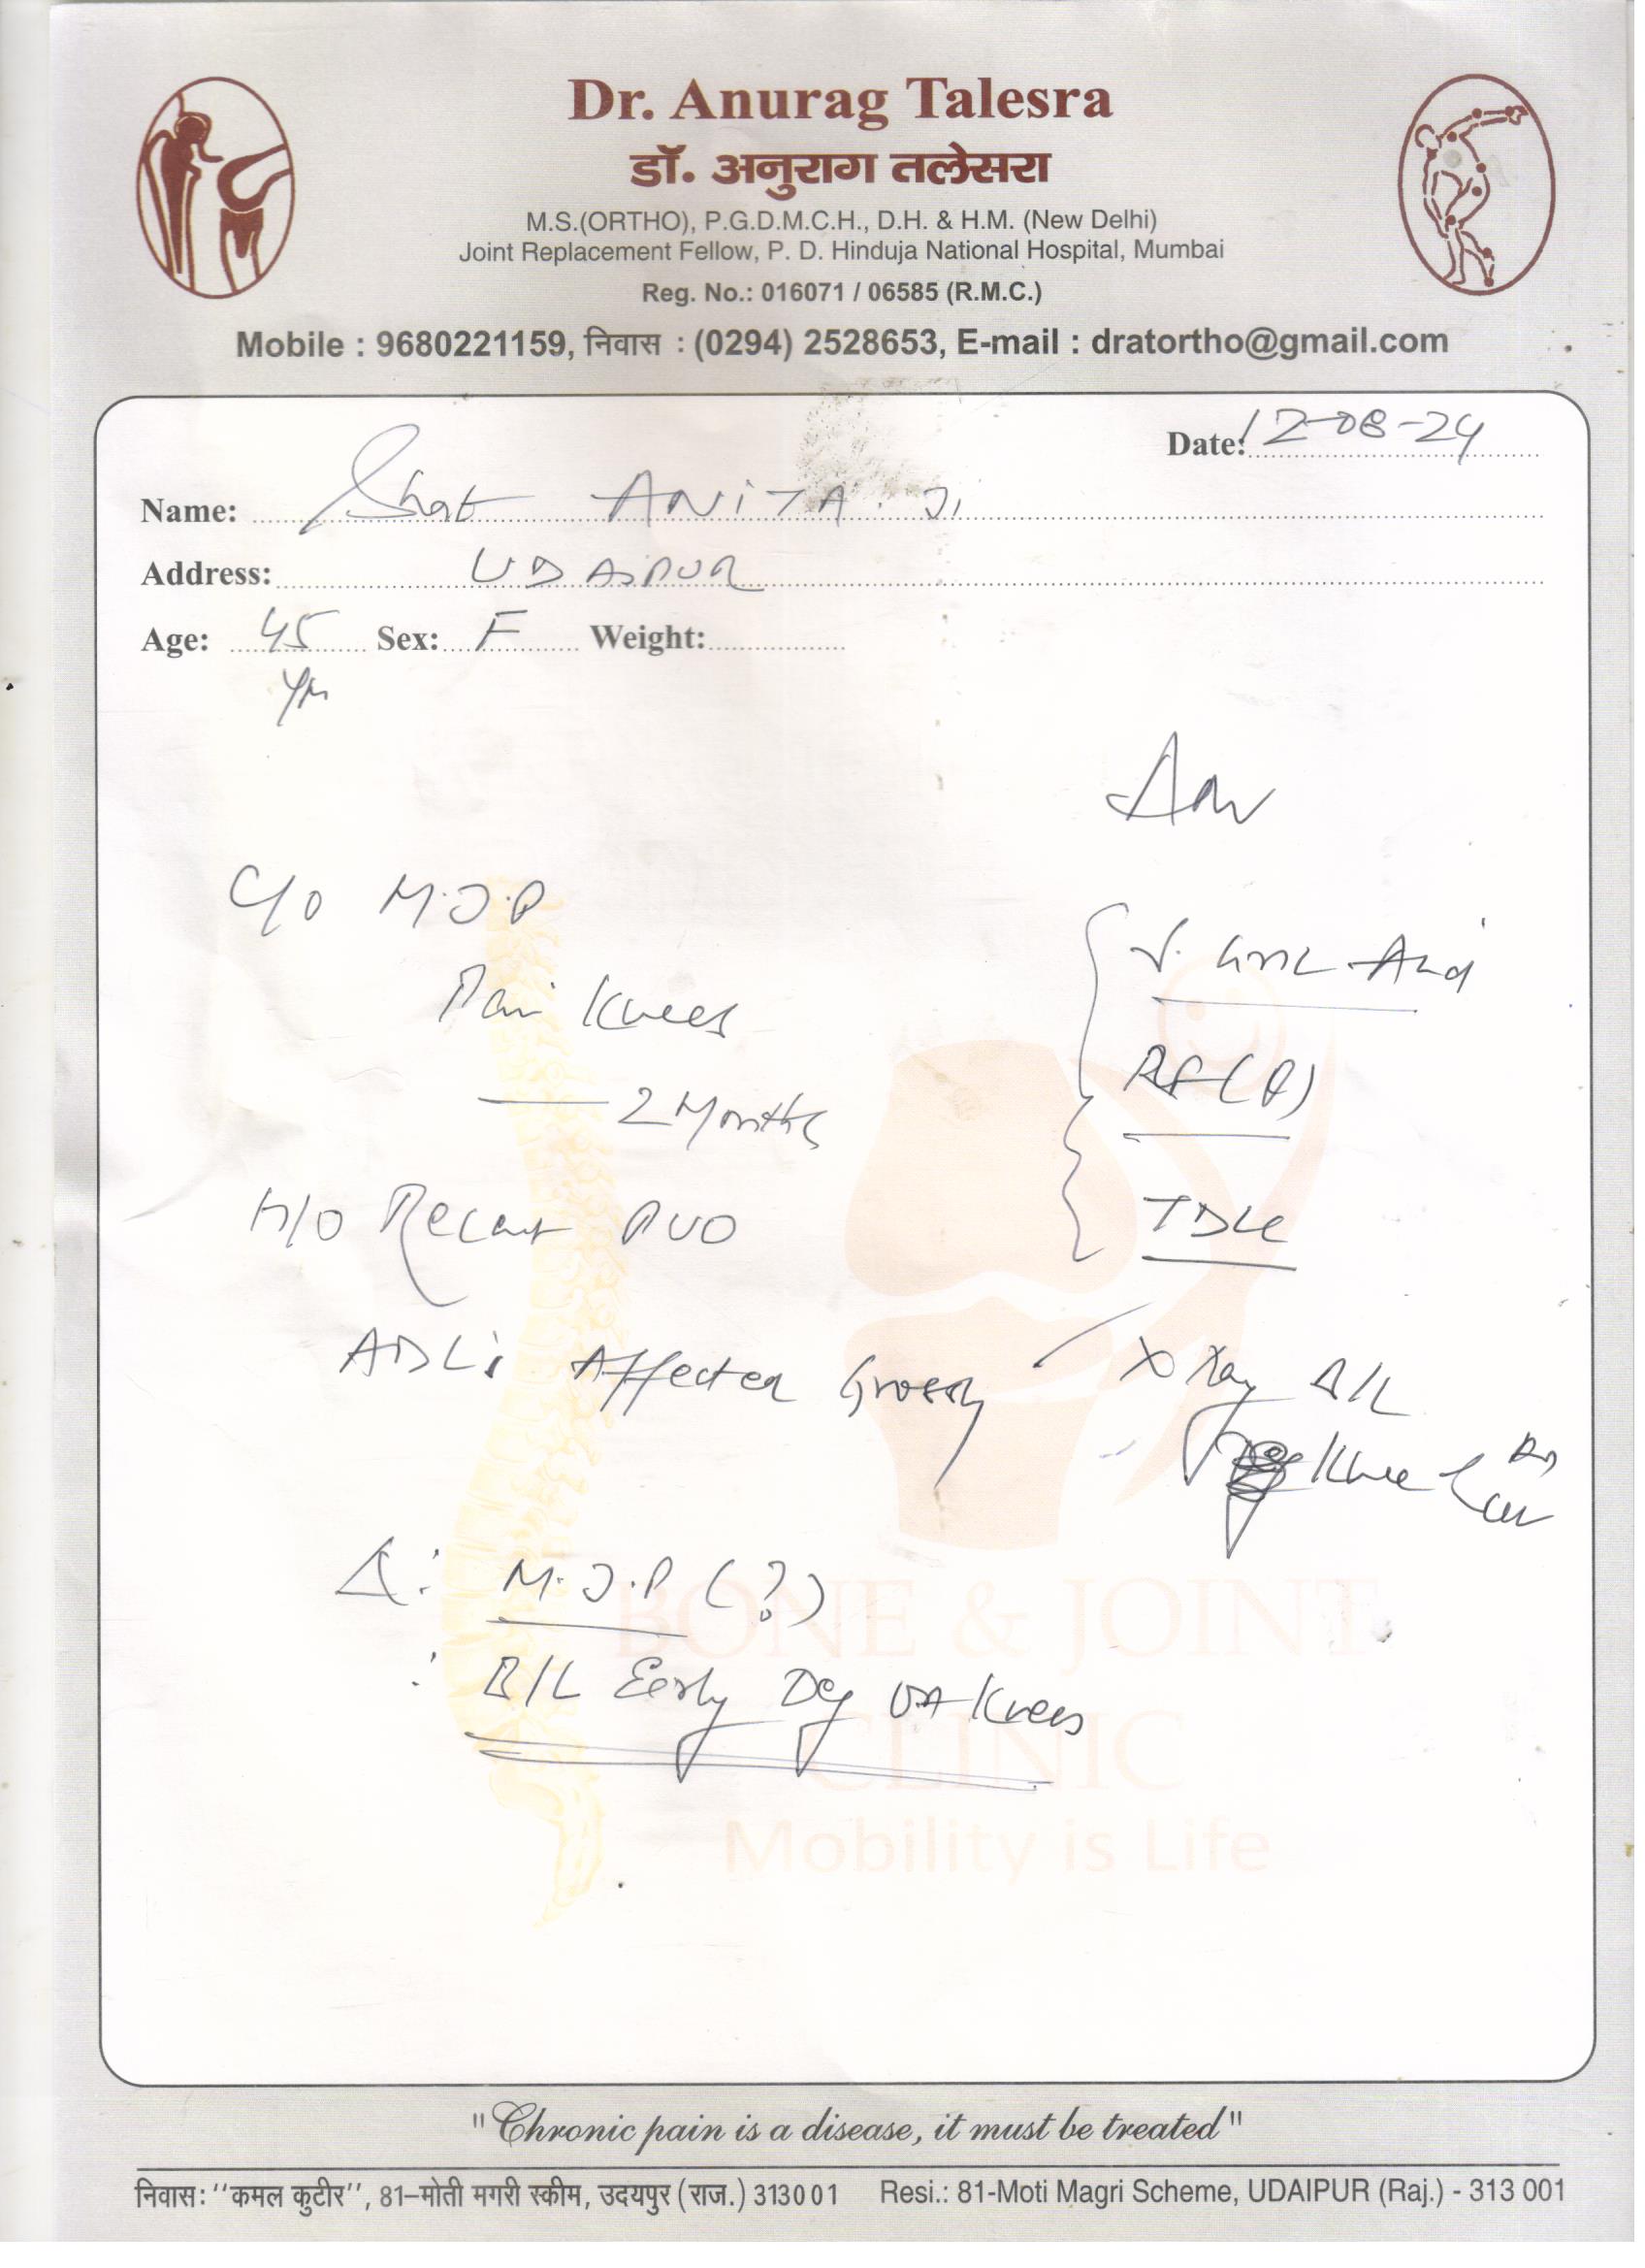 Dr. Anurag Talesra
डॉ. अनुराग तलेसरा
M.S.(ORTHO), P.G.D.M.C.H., D.H. & H.M. (New Delhi)
Joint Replacement Fellow, P. D. Hinduja National Hospital, Mumbai
Reg. No.: 016071 / 06585 (R.M.C.)
Mobile : 9680221159, निवास : (0294) 2528653, E-mail : dratortho@gmail.com
Date: 12-08-24
Name: ANITA Ji
Address: UDAIPUR
Age: 45 Sex: F Weight:
Yrs
Adv
C/o M.J.P
Pain Knees
2 Months
H/O Recent PUO
ADLs Affected Grossly
S. Uric Acid
RF (Q)
TDLC
X Ray B/L
Knee
Δ: M.J.P (?)
: B/L Early Deg OA Knees
BONE & JOINT
CLINIC
Mobility is Life
"Chronic pain is a disease, it must be treated"
निवास: ''कमल कुटीर'', 81–मोती मगरी स्कीम, उदयपुर (राज.) 313001 Resi.: 81-Moti Magri Scheme, UDAIPUR (Raj.) - 313 001